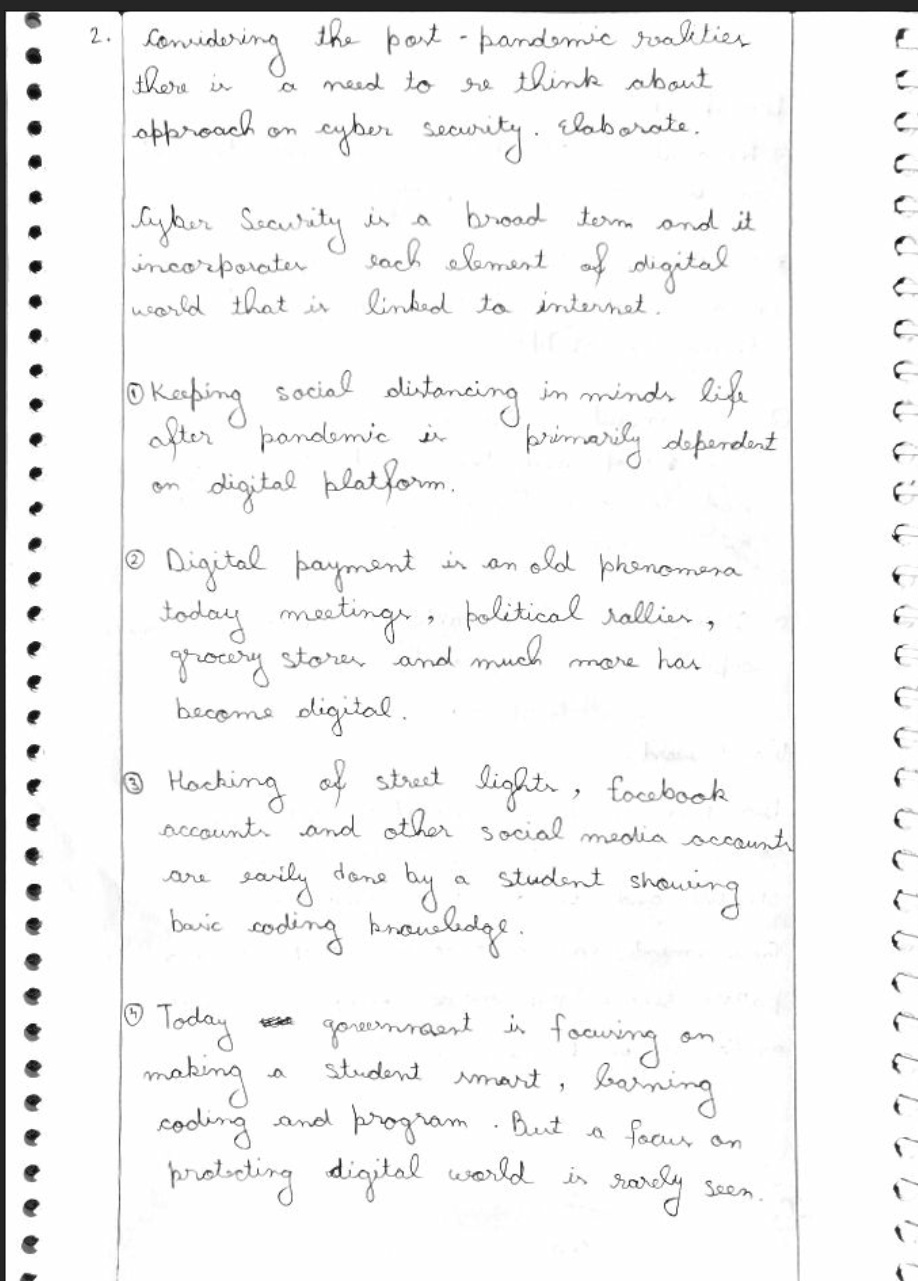 2. Considering the post - pandemic realities
there is a need to re think about
approach on cyber security. Elaborate.
Cyber Security is a broad term and it
incorporates each element of digital
world that is linked to internet.
① Keeping social distancing in minds life
after pandemic is primarily dependent
on digital platform.
② Digital payment is an old phenomena
today meetings, political rallies,
grocery stores and much more has
become digital.
③ Hacking of street lights, facebook
accounts and other social media accounts
are easily done by a student showing
basic coding knowledge.
④ Today government is focusing on
making a student smart, learning
coding and program. But a focus on
protecting digital world is rarely seen.